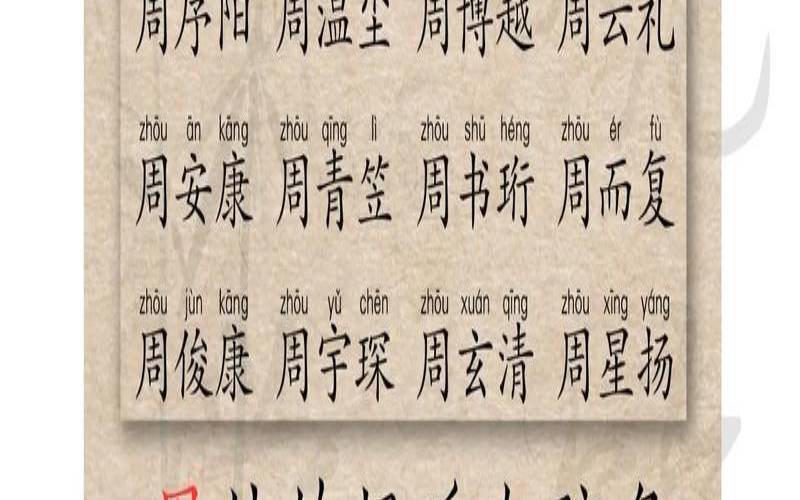 周序阳 周温垕 周博越 周云礼
zhōu ān kāng zhōu qīng lì zhōu shū héng zhōu ér fù
周安康 周青笠 周书珩 周而复
zhōu jùn kāng zhōu yǔ chēn zhōu xuán qīng zhōu xīng yáng
周俊康 周宇琛 周玄清 周星扬